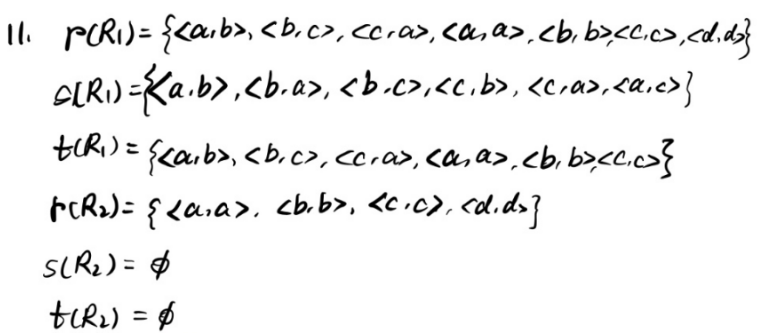 11. r(R₁)={<a,b>,<b,c>,<c,a>,<a,a>,<b,b>,<c,c>,<d,d>}
s(R₁)={<a,b>,<b,a>,<b,c>,<c,b>,<c,a>,<a,c>}
t(R₁)={<a,b>,<b,c>,<c,a>,<a,a>,<b,b>,<c,c>}
r(R₂)={<a,a>,<b,b>,<c,c>,<d,d>}
s(R₂)=ϕ
t(R₂)=ϕ